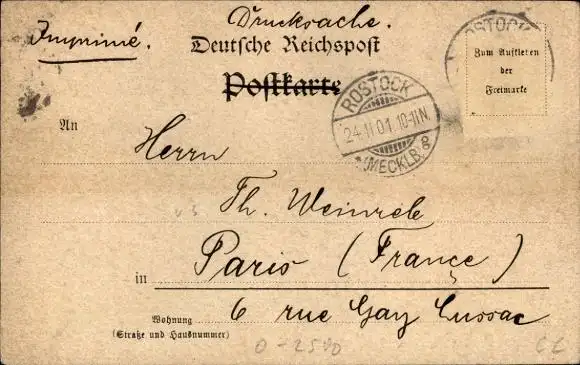 Drucksache.
Imprimé.
Deutsche Reichspost
Postkarte
ROSTOCK
Zum Aufkleben
der
Freimarke
ROSTOCK
24.11.01. 10-11N.
(MECKLB.)
An
Herrn
Th. Weinrele
Paris (France)
in
6 rue Gay Lussac
Wohnung
(Straße und Hausnummer)